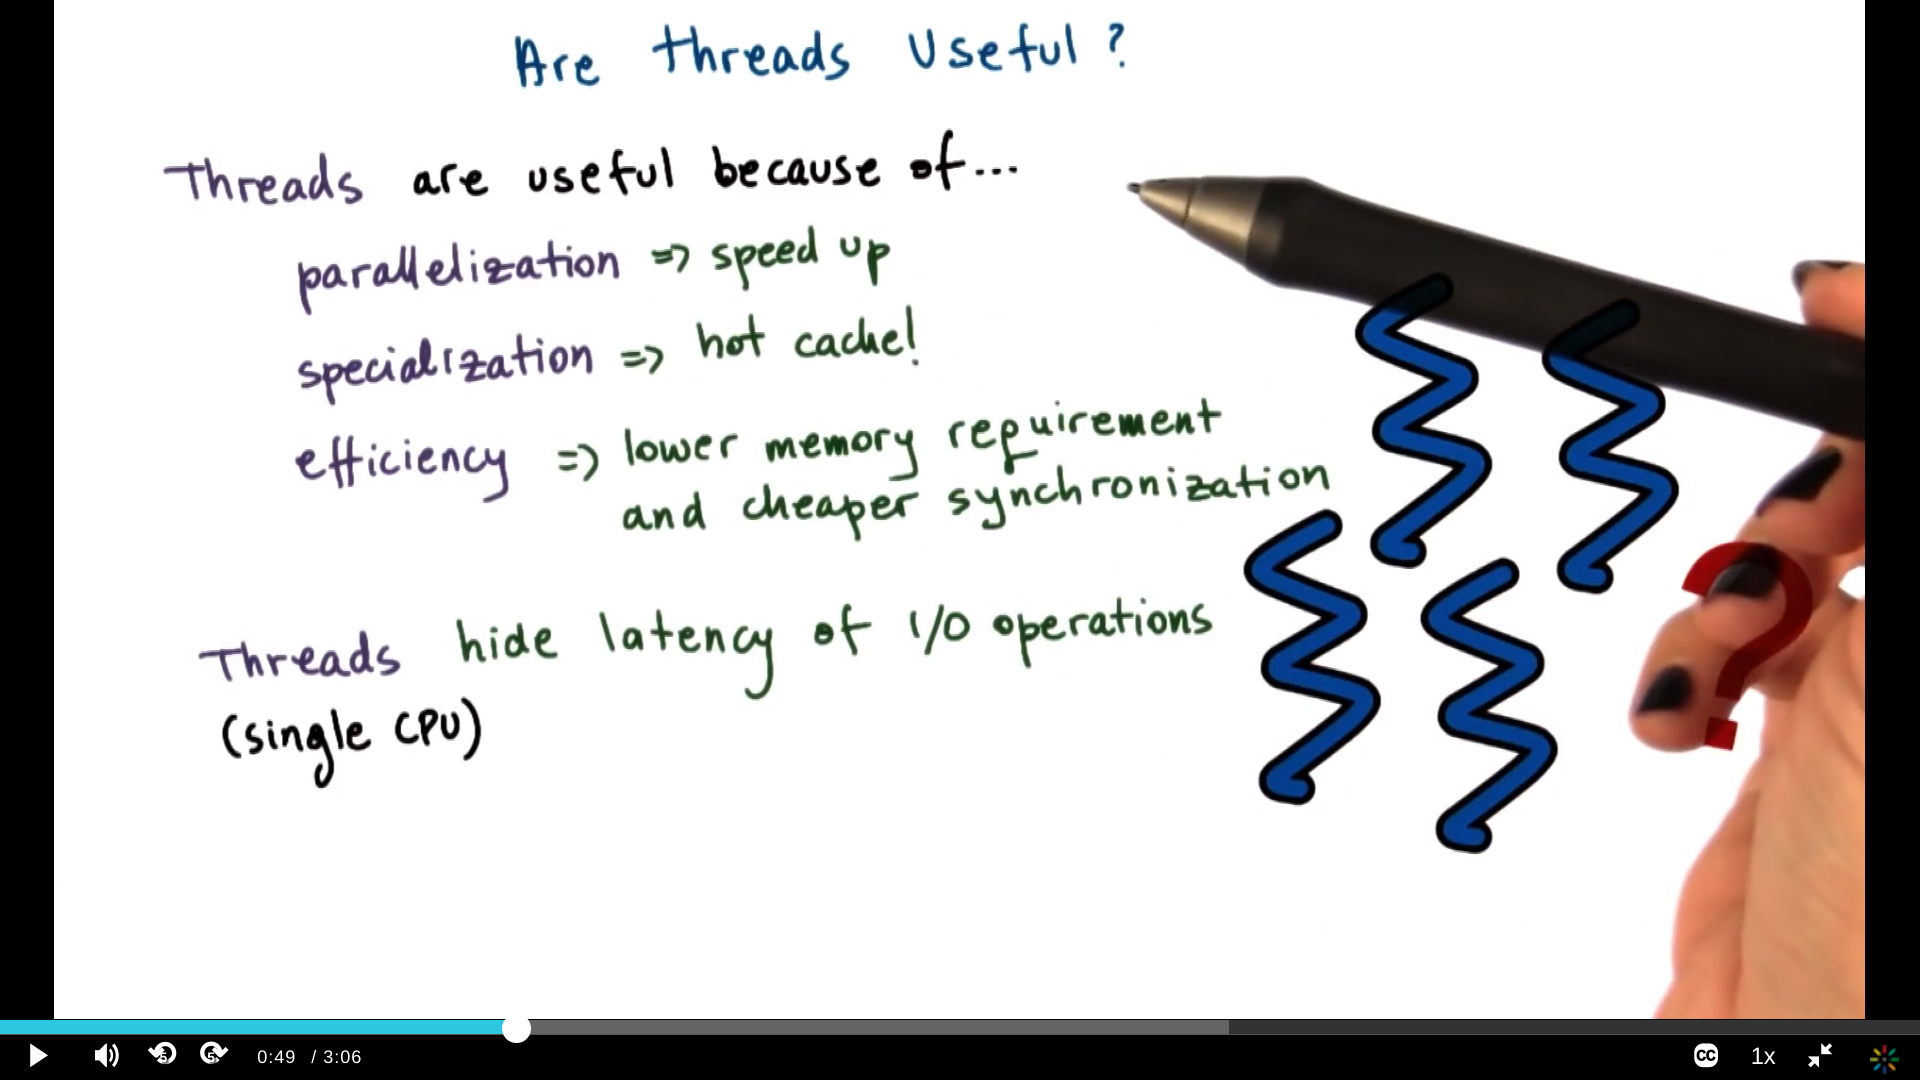 Are Threads Useful?
Threads are useful because of...
parallelization => speed up
specialization => hot cache!
efficiency => lower memory requirement
and cheaper synchronization
Threads hide latency of I/O operations
(single CPU)
?
5 5 0:49 / 3:06 CC 1x